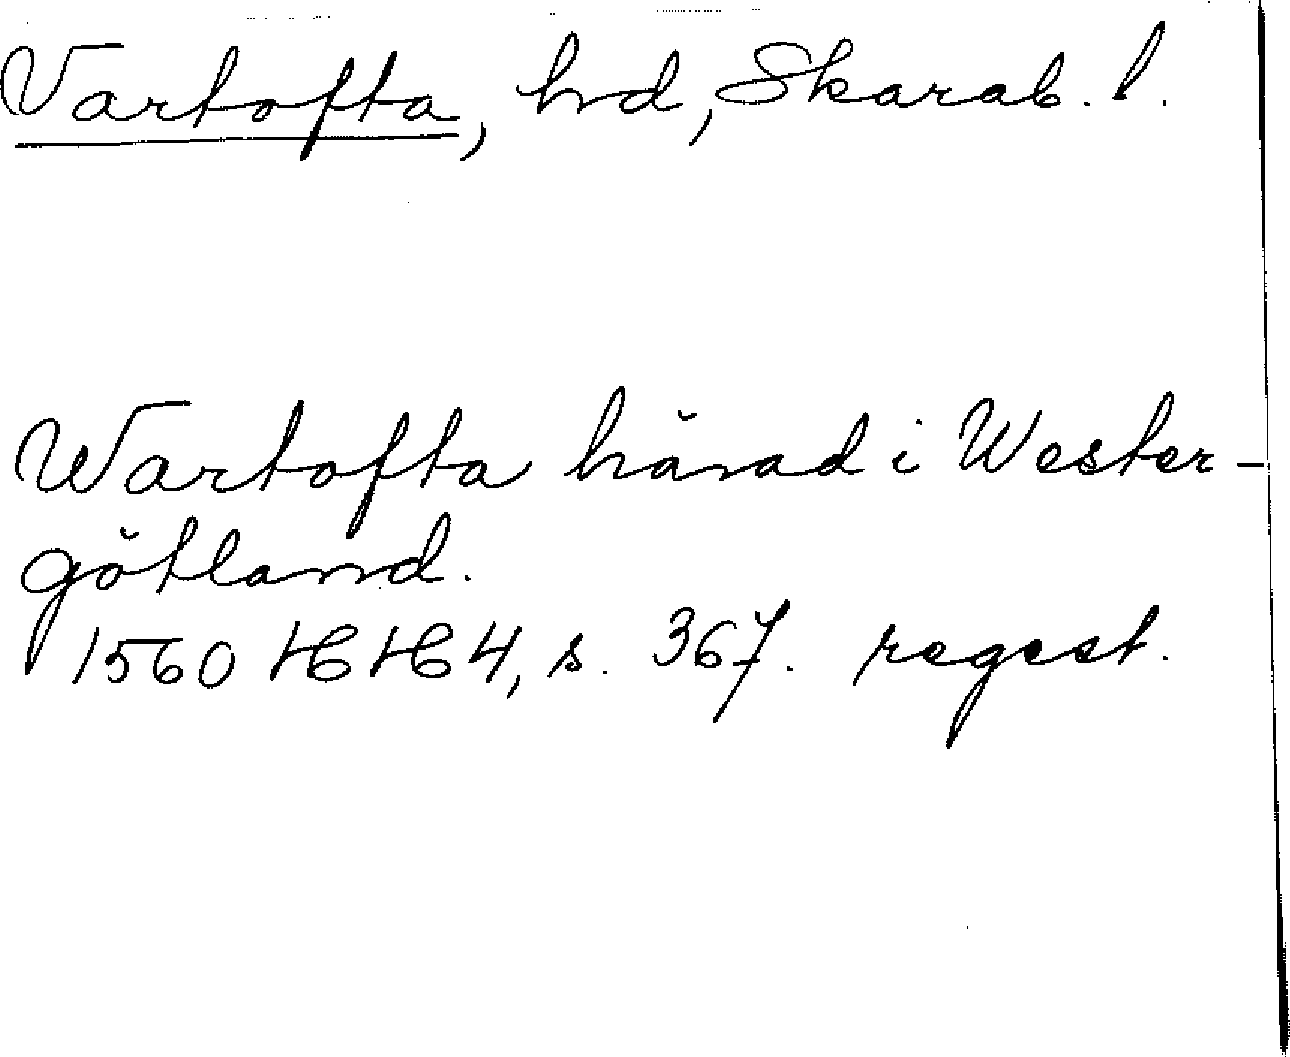 Vartofta, hd, Skarab. l.
Wartofta härad i Wester-
götland.
1560 HH4, s. 367. regest.